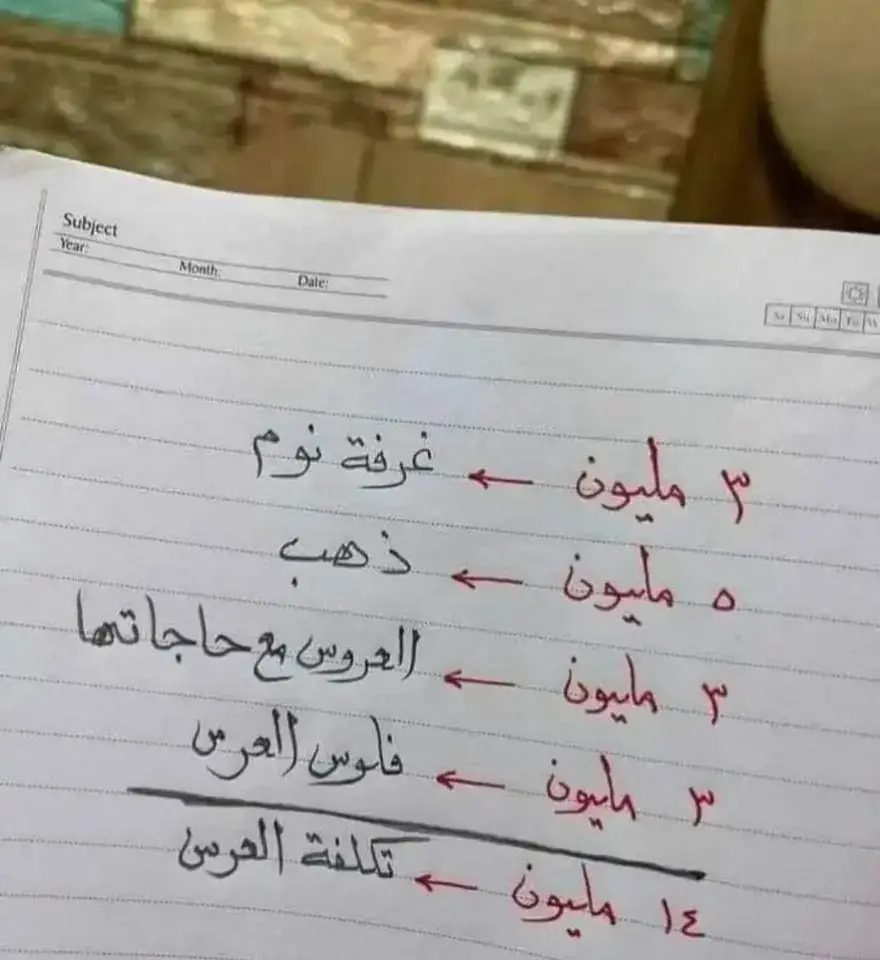 Subject
Year:
Month:
Date:
Sa Su Mo Tu W
٣ مليون ← غرفة نوم
٥ مليون ← ذهب
٣ مليون ← العروس مع حاجاتها
٣ مليون ← فلوس العرس
١٤ مليون ← تكلفة العرس